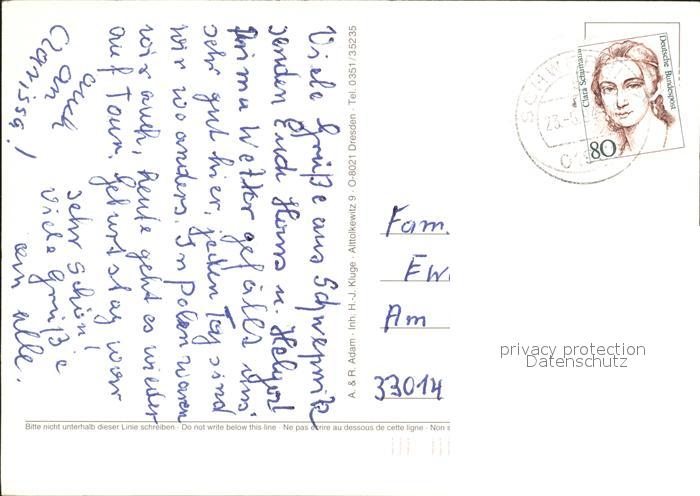 Viele Grüße aus Schwepnitz
senden Euch Hans u. Helga!
Prima Wetter gefällt uns
sehr gut hier, jeden Tag sind
wir woanders. In Polen waren
wir auch, heute geht es wieder
auf Tour. Geburtstag war
sehr schön!
Viele Grüße
an alle.
auch
an
Clarissa!
A. & R. Adam · Inh. H.-J. Kluge · Alttolkewitz 9 · O-8021 Dresden · Tel. 0351/35235
Deutsche Bundespost
Clara Schumann
80
SCHW
Fam.
Am
33014
privacy protection
Datenschutz
Bitte nicht unterhalb dieser Linie schreiben · Do not write below this line · Ne pas écrire au dessous de cette ligne · Non s